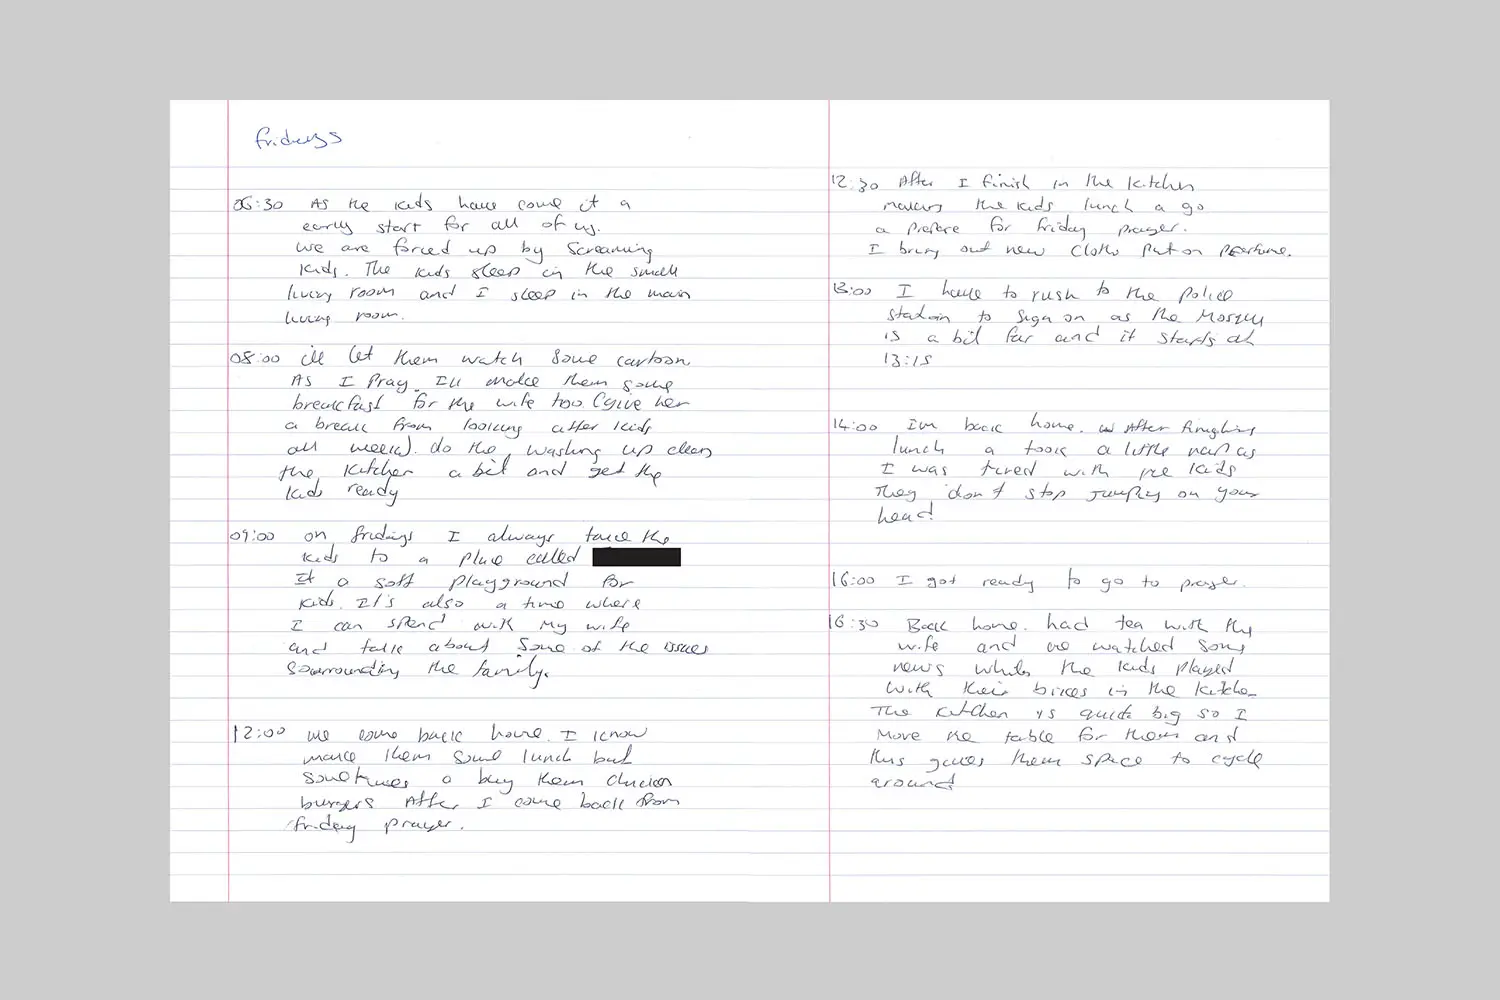 fridays
06:30 As the kids have come it a
early start for all of us.
we are forced up by screaming
kids. The kids sleep in the small
living room and I sleep in the main
living room.
08:00 ill let them watch some cartoon
As I pray. I'll make them some
breakfast for the wife too (give her
a break from looking after kids
all week). do the washing up clean
the kitchen a bit and get the
kids ready
09:00 on fridays I always take the
kids to a place called
It a soft playground for
kids. It's also a time where
I can spend with my wife
and talk about some of the issues
sourrounding the family.
12:00 we come back home. I know
make them some lunch but
sometimes a buy them chicken
burgers After I come back from
friday prayer.
12:30 After I finish in the kitchen
making the kids lunch a go
a prepare for friday prayer.
I bring out new cloths put on perfume.
13:00 I have to rush to the police
station to sign on as the Mosque
is a bit far and it starts at
13:15
14:00 I'm back home. After finishing
lunch a took a little nap as
I was tired with the kids
They don't stop jumping on your
head
16:00 I got ready to go to prayer.
16:30 Back home. had tea with the
wife and we watched some
news while the kids played
with their bikes in the kitchen
The kitchen is quite big so I
move the table for them and
this gives them space to cycle
around